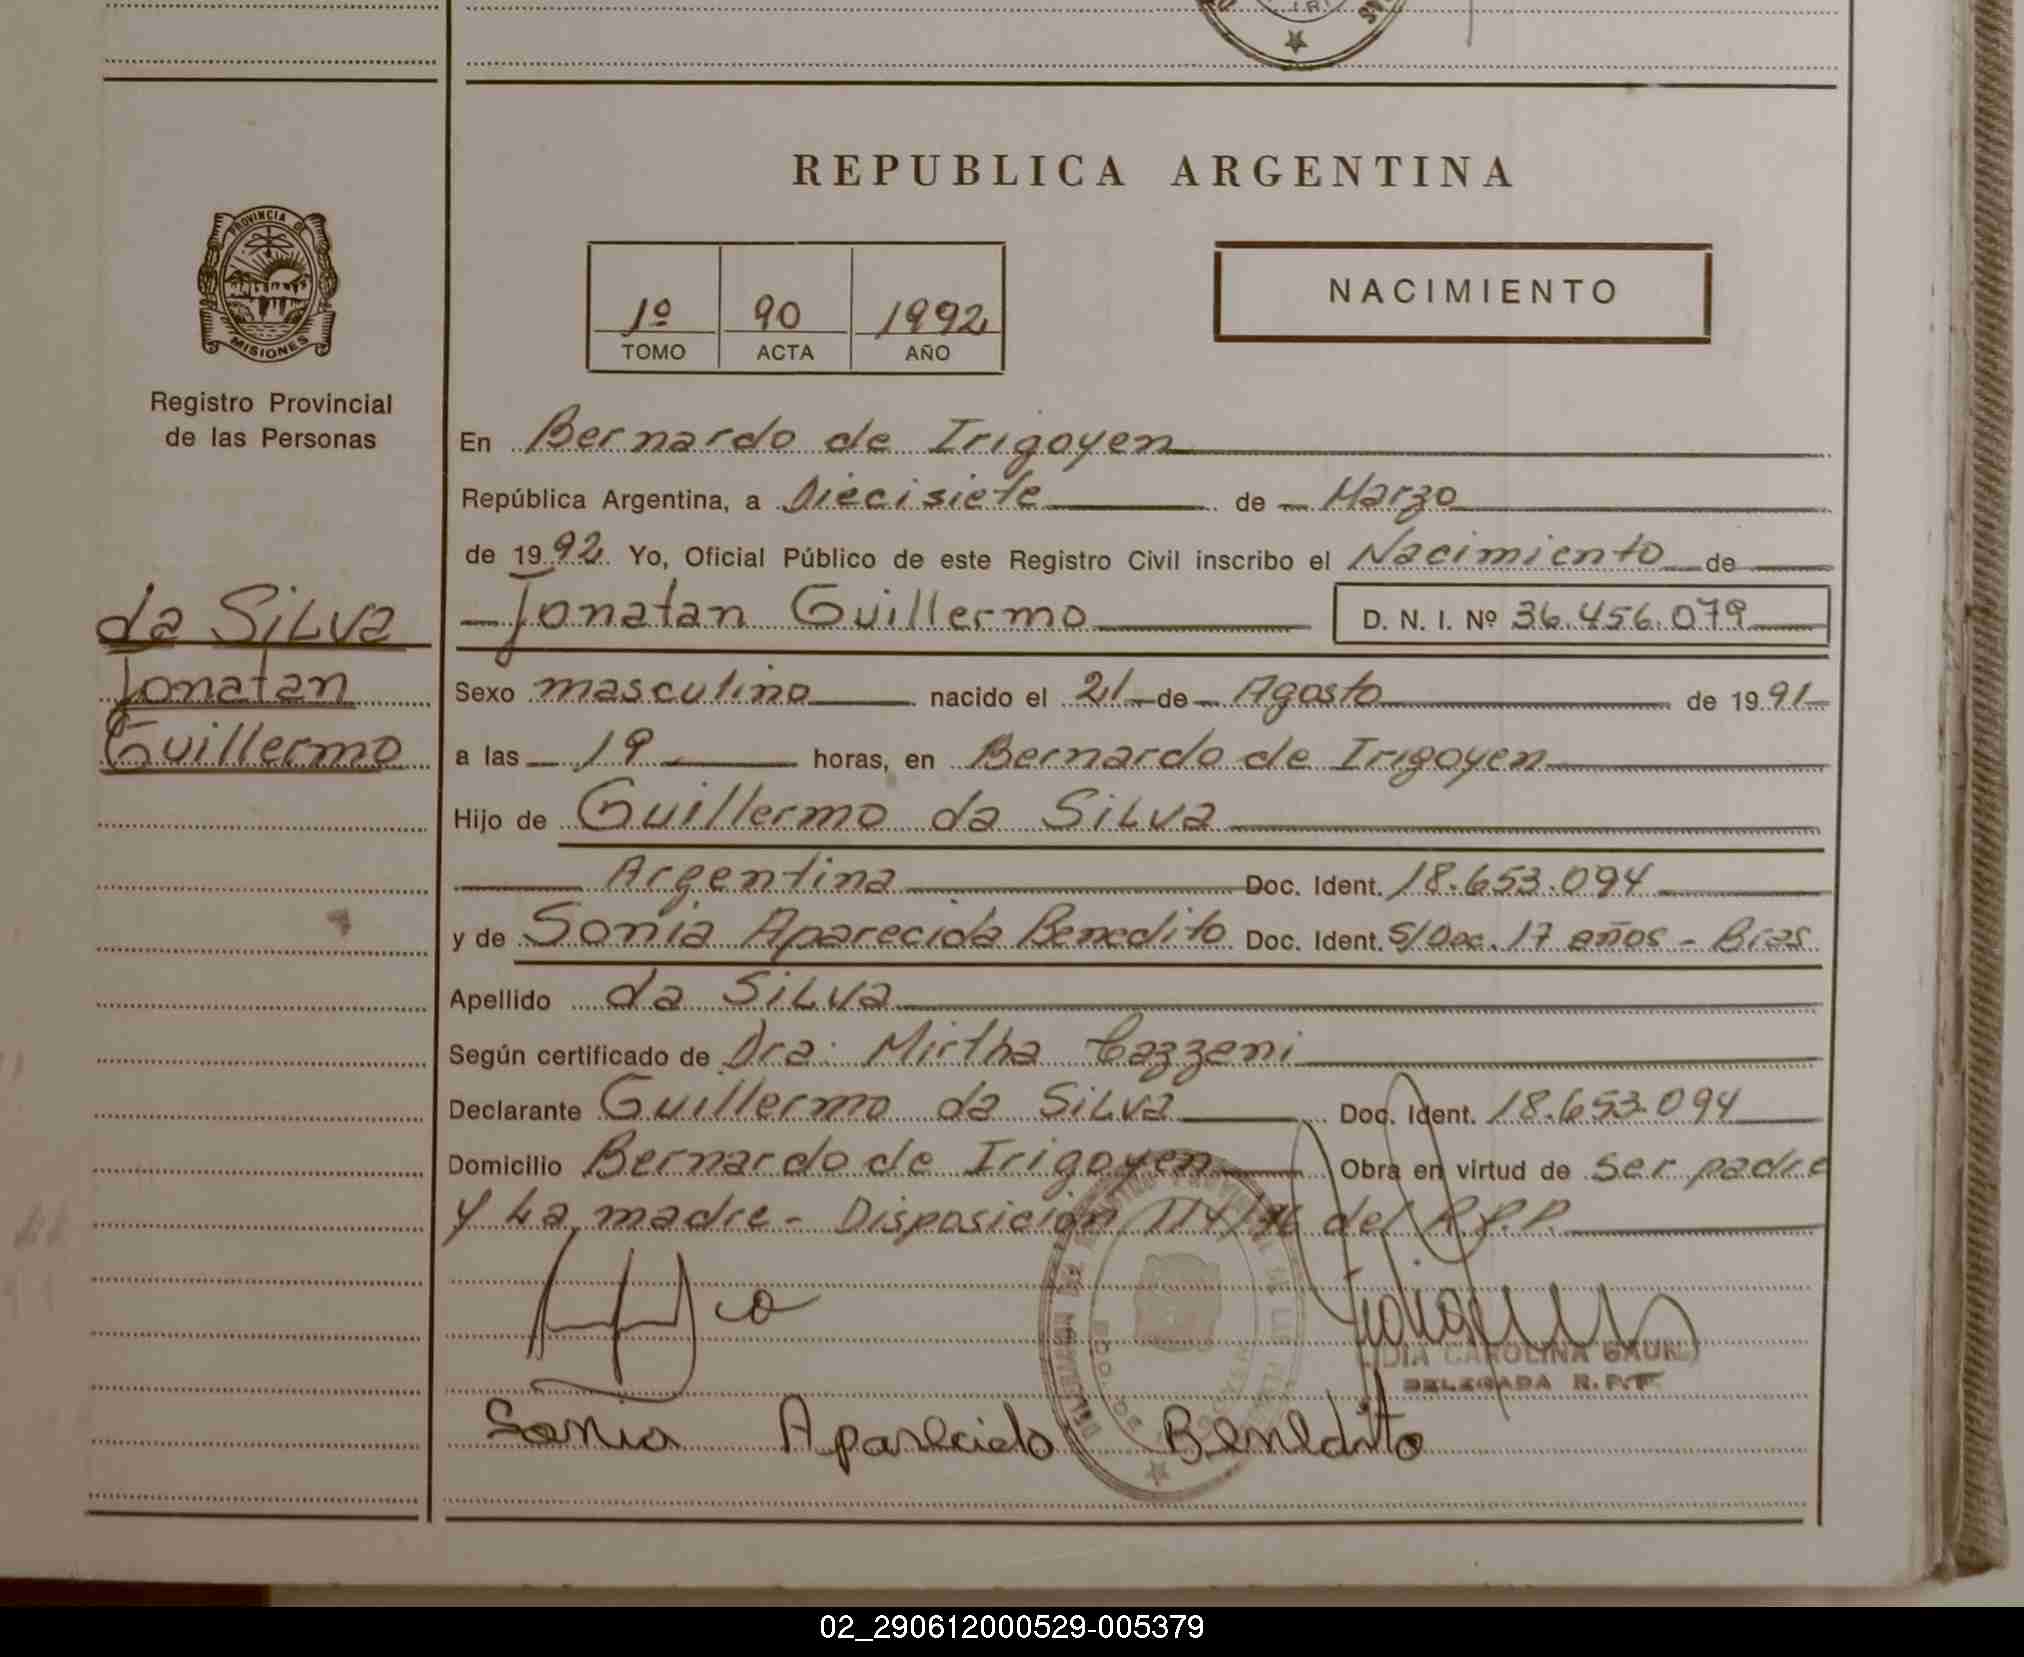 REPUBLICA ARGENTINA
PROVINCIA DE
MISIONES
Registro Provincial
de las Personas
1º 90 1992
TOMO ACTA AÑO
NACIMIENTO
da Silva
Jonatan
Guillermo
En Bernardo de Irigoyen
República Argentina, a Diecisiete de Marzo
de 1992 Yo, Oficial Público de este Registro Civil inscribo el Nacimiento de
Jonatan Guillermo D. N. I. Nº 36.456.079
Sexo masculino nacido el 21 de Agosto de 1991
a las 19 horas, en Bernardo de Irigoyen
Hijo de Guillermo da Silva
Argentina Doc. Ident. 18.653.094
y de Sonia Aparecida Benedito Doc. Ident. S/Doc. 17 años - Bras.
Apellido da Silva
Según certificado de Dra. Mirtha Cazzeni
Declarante Guillermo da Silva Doc. Ident. 18.653.094
Domicilio Bernardo de Irigoyen Obra en virtud de ser padre
y la madre - Disposición del R.P.P.
CAROLINA
DELEGADA R.P.P.
Sonia Aparecida Benedito
02_290612000529-005379